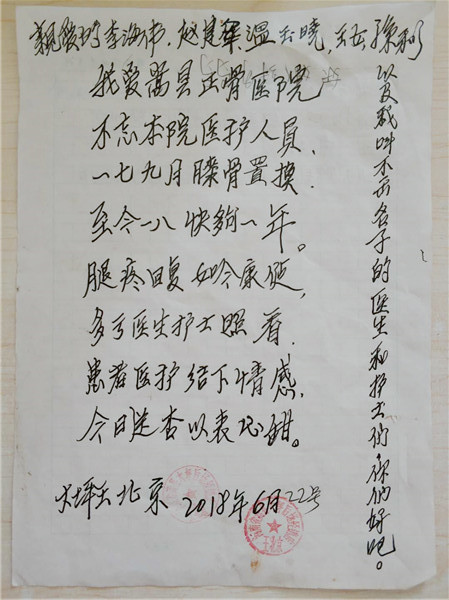 亲爱的李海伟,赵建军,温玉晓,王芸,孙利
以及我叫不上名子的医生和护士们,你们好吧。
我爱嵩县正骨医院
不忘本院医护人員,
一七九月膝骨置换,
至今一八快夠一年。
腿疼回复如今康健,
多亏医生护士照看,
患者医护结下情感,
今日送杏以表心甜。
北京 2018年6月22号